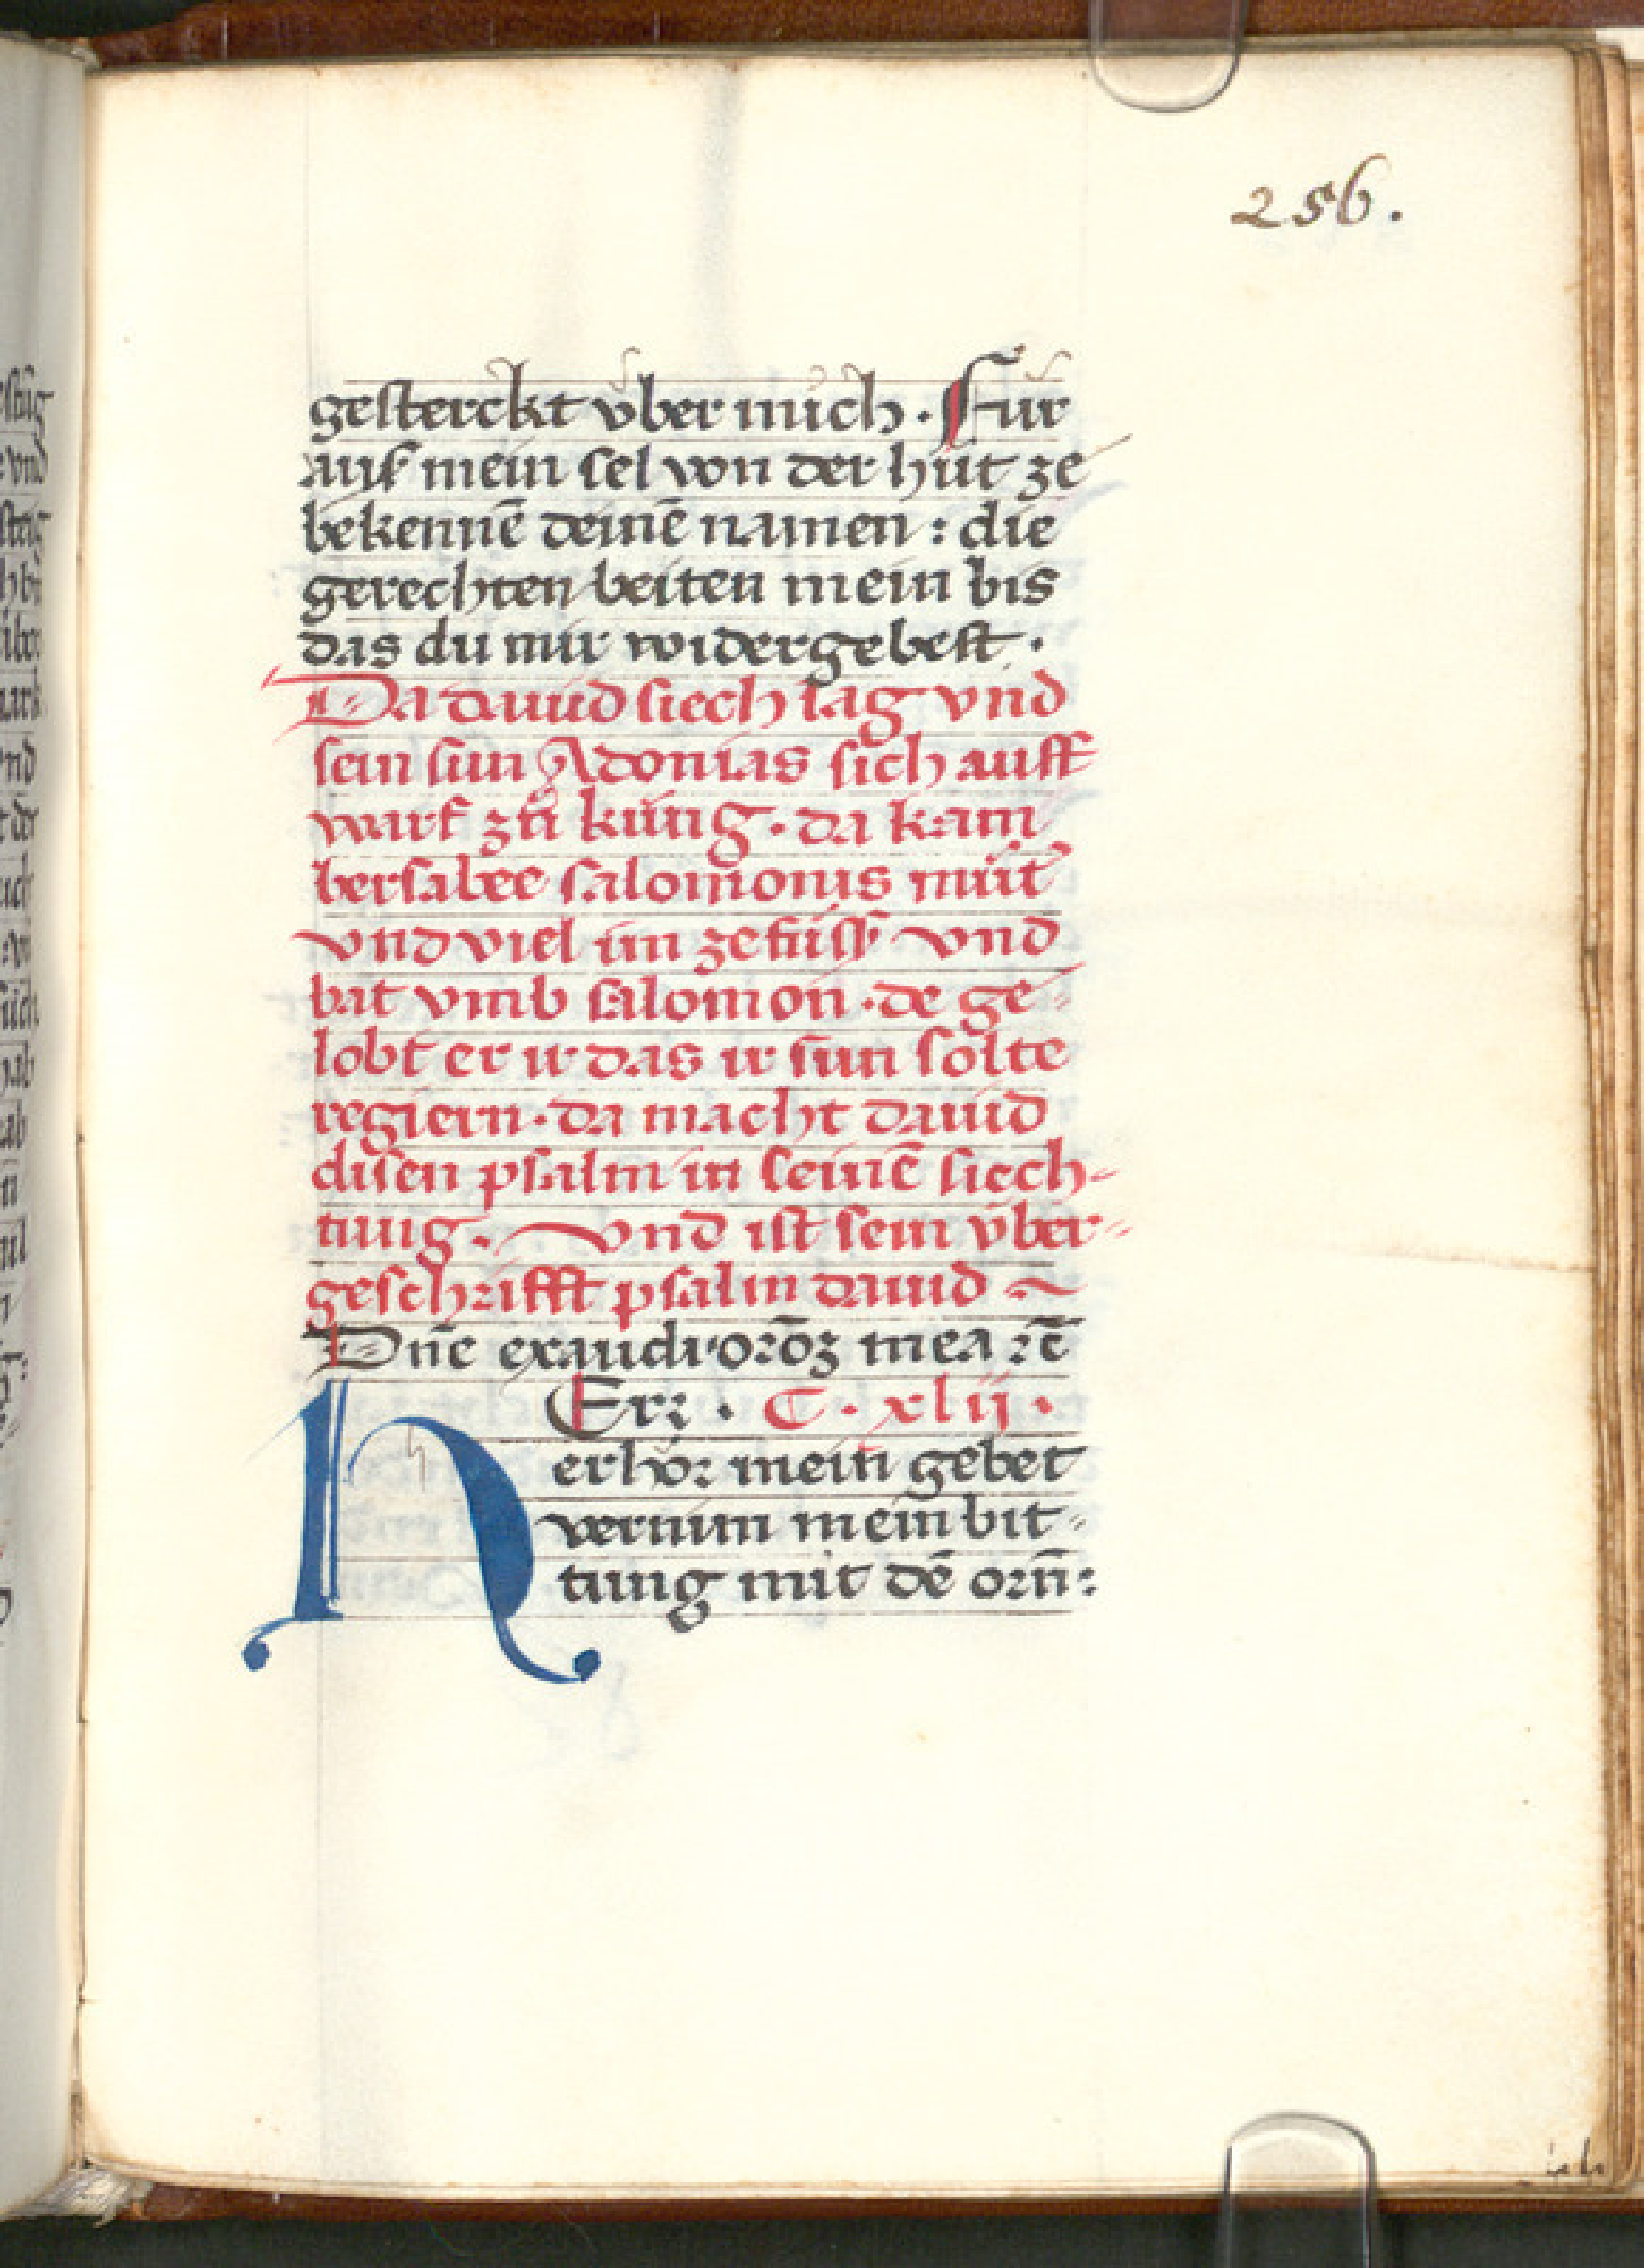 256.
gesterckt v̊ber mich. Für
auſſ mein sel von der hůt ze
bekennē deinē namen: die
gerechten beiten mein bis
das du mir widergebest.
Da dauid siech lag vnd
sein sun Adonias sich auff
warf zů küng. da kam
bersabee salomonis můt
vnd viel im ze füss vnd
bat vmb salomon. de ge⸗
lobt er ir das ir sun solte
regiern. da macht dauid
disen psalm in seinē siech⸗
tung. Vnd ist sein v̈ber⸗
geschrifft psalm dauid ~
Dn̄e exaudi orōꝫ mea rc̄
HErꝛ. C. xlij.
erhör mein gebet
vernim mein bit⸗
tung mit dē orn̄: